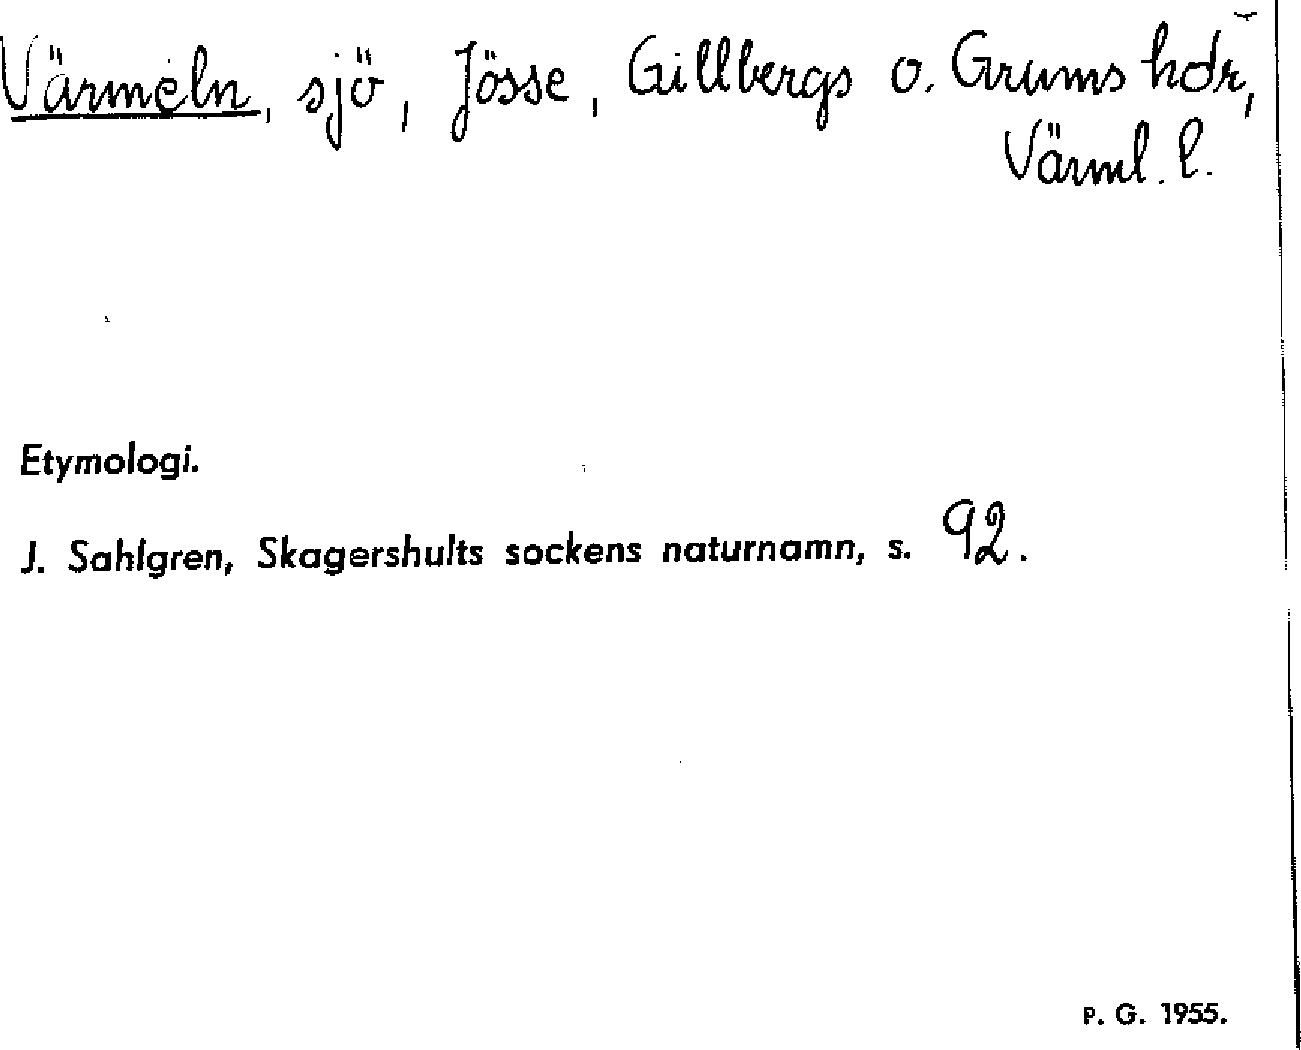 Värmeln, sjö, Jösse, Gillbergs o. Grums hdr,
Värml. l.
Etymologi.
J. Sahlgren, Skagershults sockens naturnamn, s. 92.
P. G. 1955.